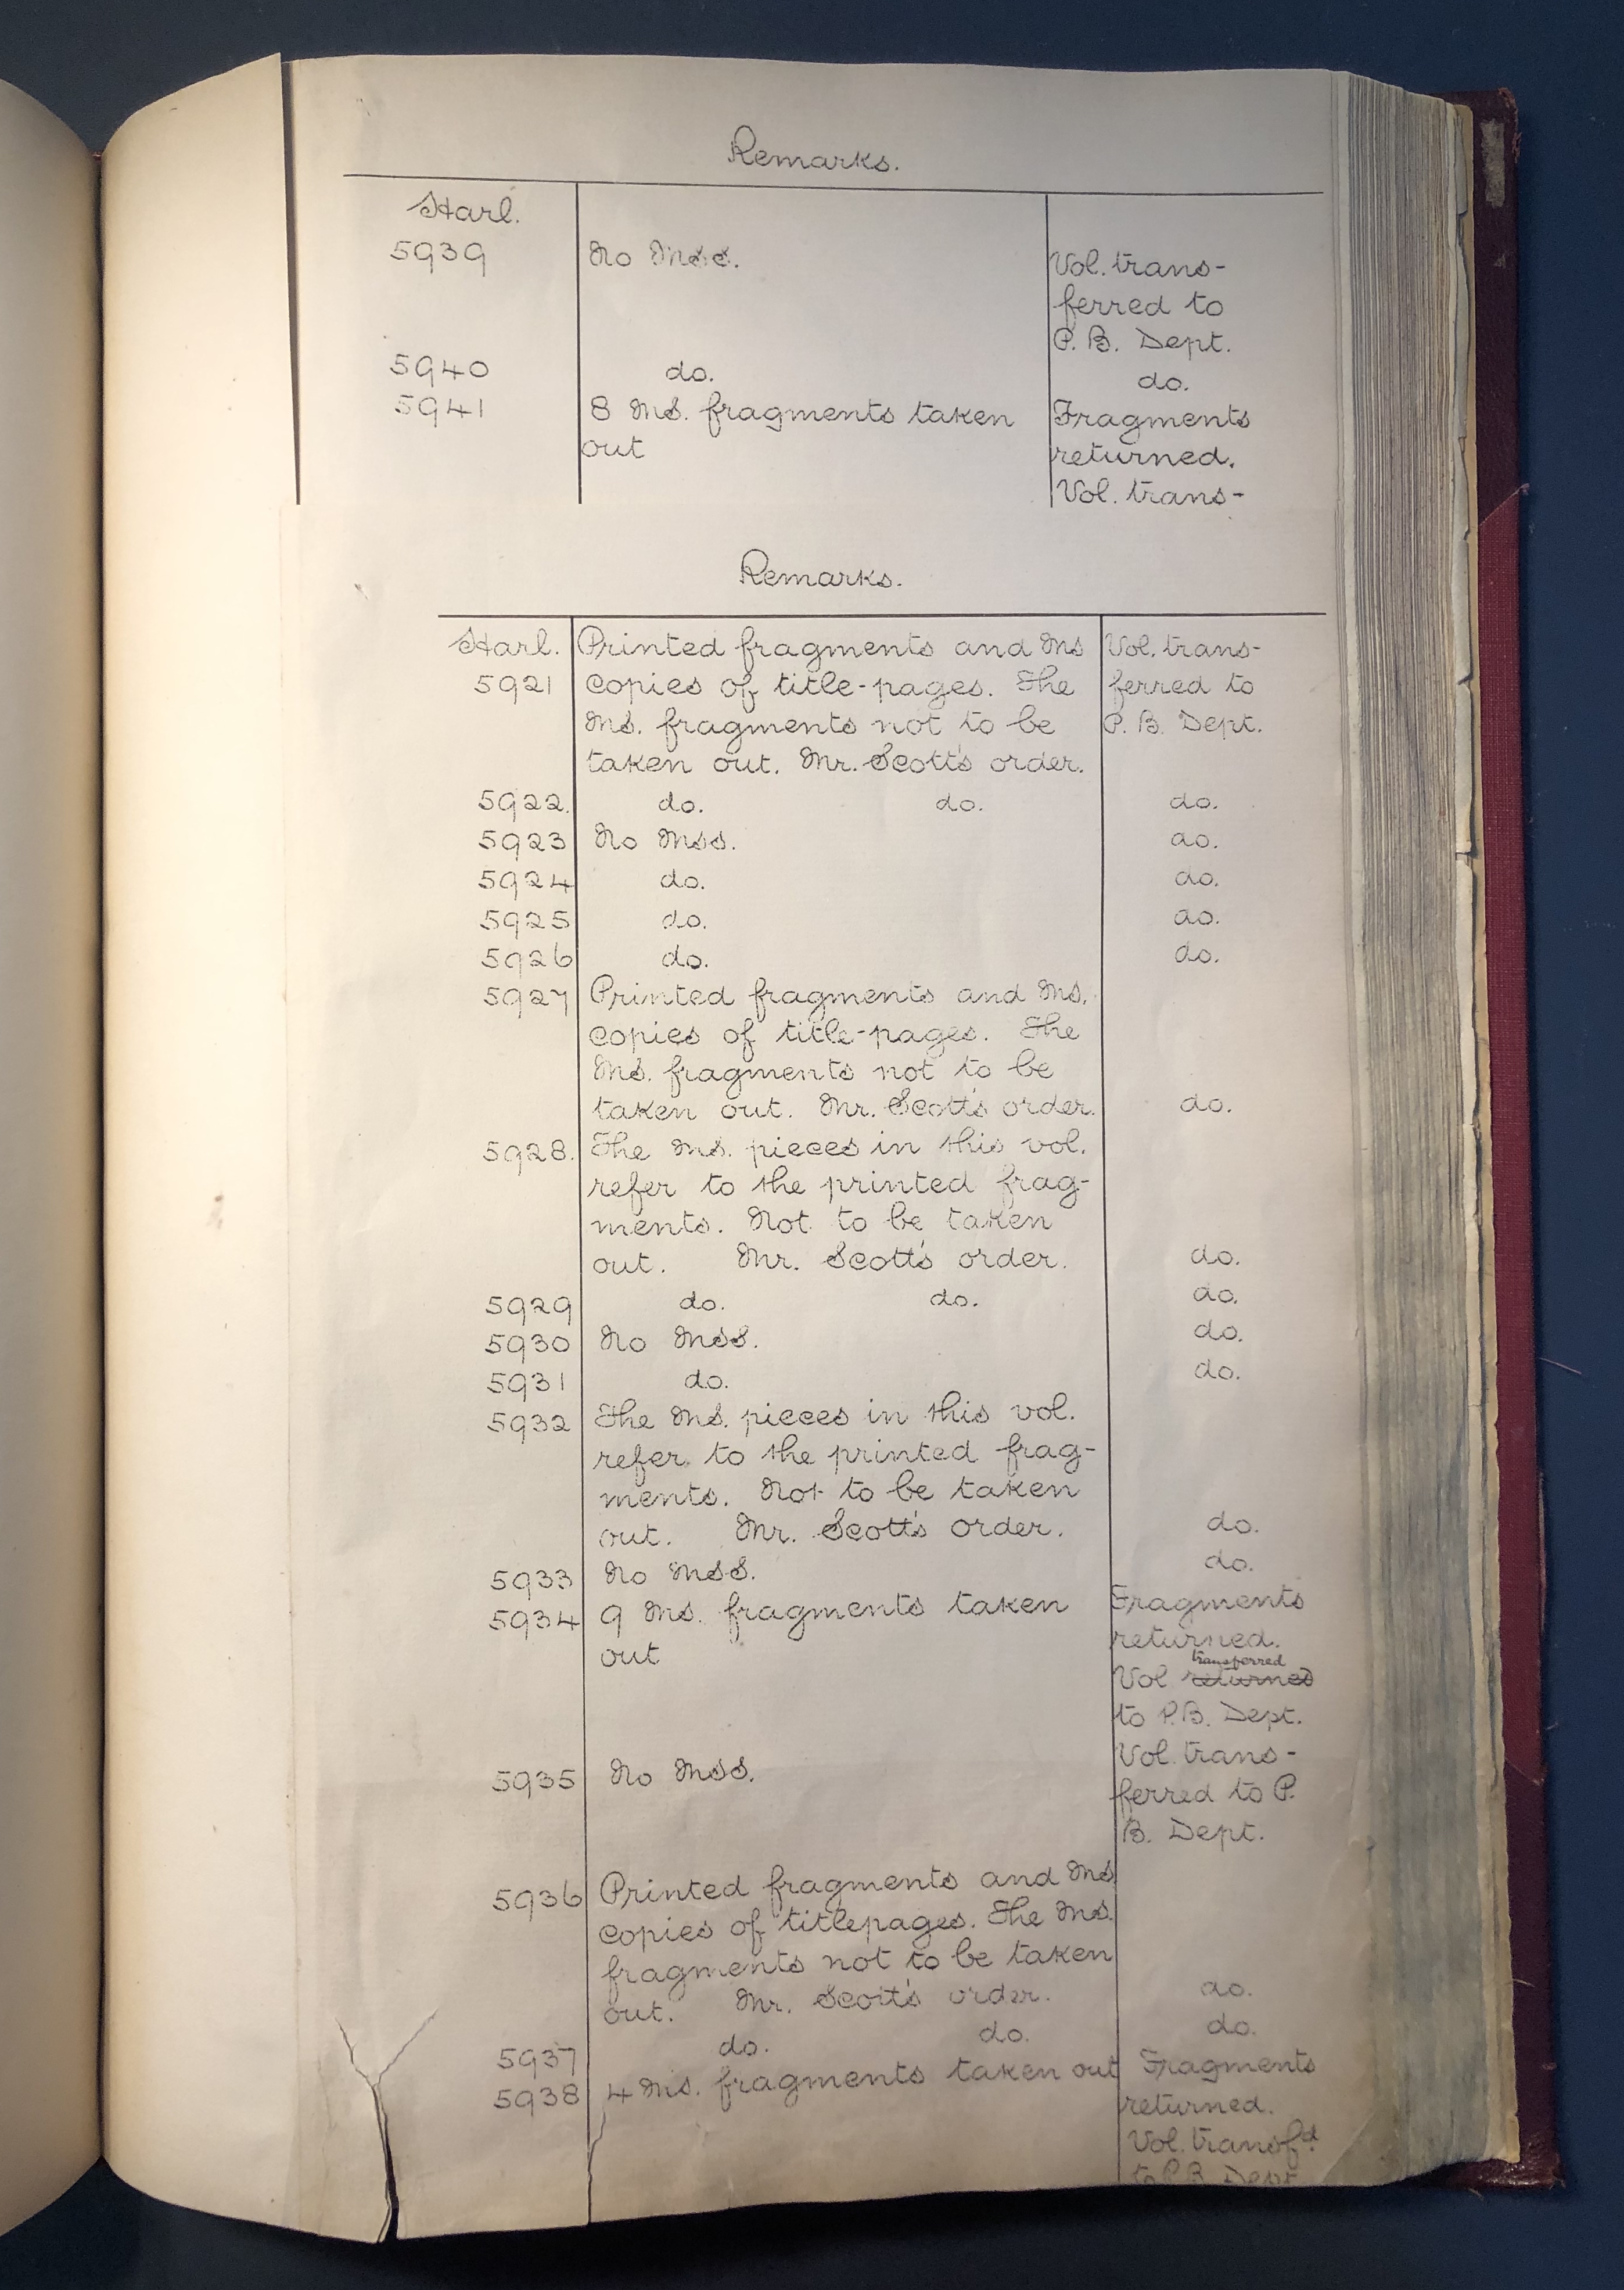 Remarks.
Harl.
5939 No MSS. Vol. trans-
ferred to
P. B. Dept.
5940 do. do.
5941 8 MS. fragments taken Fragments
out returned.
Vol. trans-
Remarks.
Harl. Printed fragments and MS Vol. trans-
5921 copies of title-pages. The ferred to
MS. fragments not to be P. B. Dept.
taken out. Mr. Scott's order.
5922. do. do. do.
5923 No MSS. do.
5924 do. do.
5925 do. do.
5926 do. do.
5927 Printed fragments and MS.
copies of title-pages. The
MS. fragments not to be
taken out. Mr. Scott's order. do.
5928. The MS. pieces in this vol.
refer to the printed frag-
ments. Not to be taken
out. Mr. Scott's order. do.
5929 do. do. do.
5930 No MSS. do.
5931 do. do.
5932 The MS. pieces in this vol.
refer to the printed frag-
ments. Not to be taken
out. Mr. Scott's order. do.
5933 No MSS. do.
5934 9 MS. fragments taken Fragments
out returned.
transferred
Vol returned
to P.B. Dept.
5935 No MSS. Vol. trans-
ferred to P.
B. Dept.
5936 Printed fragments and MS
copies of titlepages. The MS.
fragments not to be taken
out. Mr. Scott's order. do.
5937 do. do. do.
5938 4 MS. fragments taken out Fragments
returned.
Vol. transfd.
to P.B. Dept.